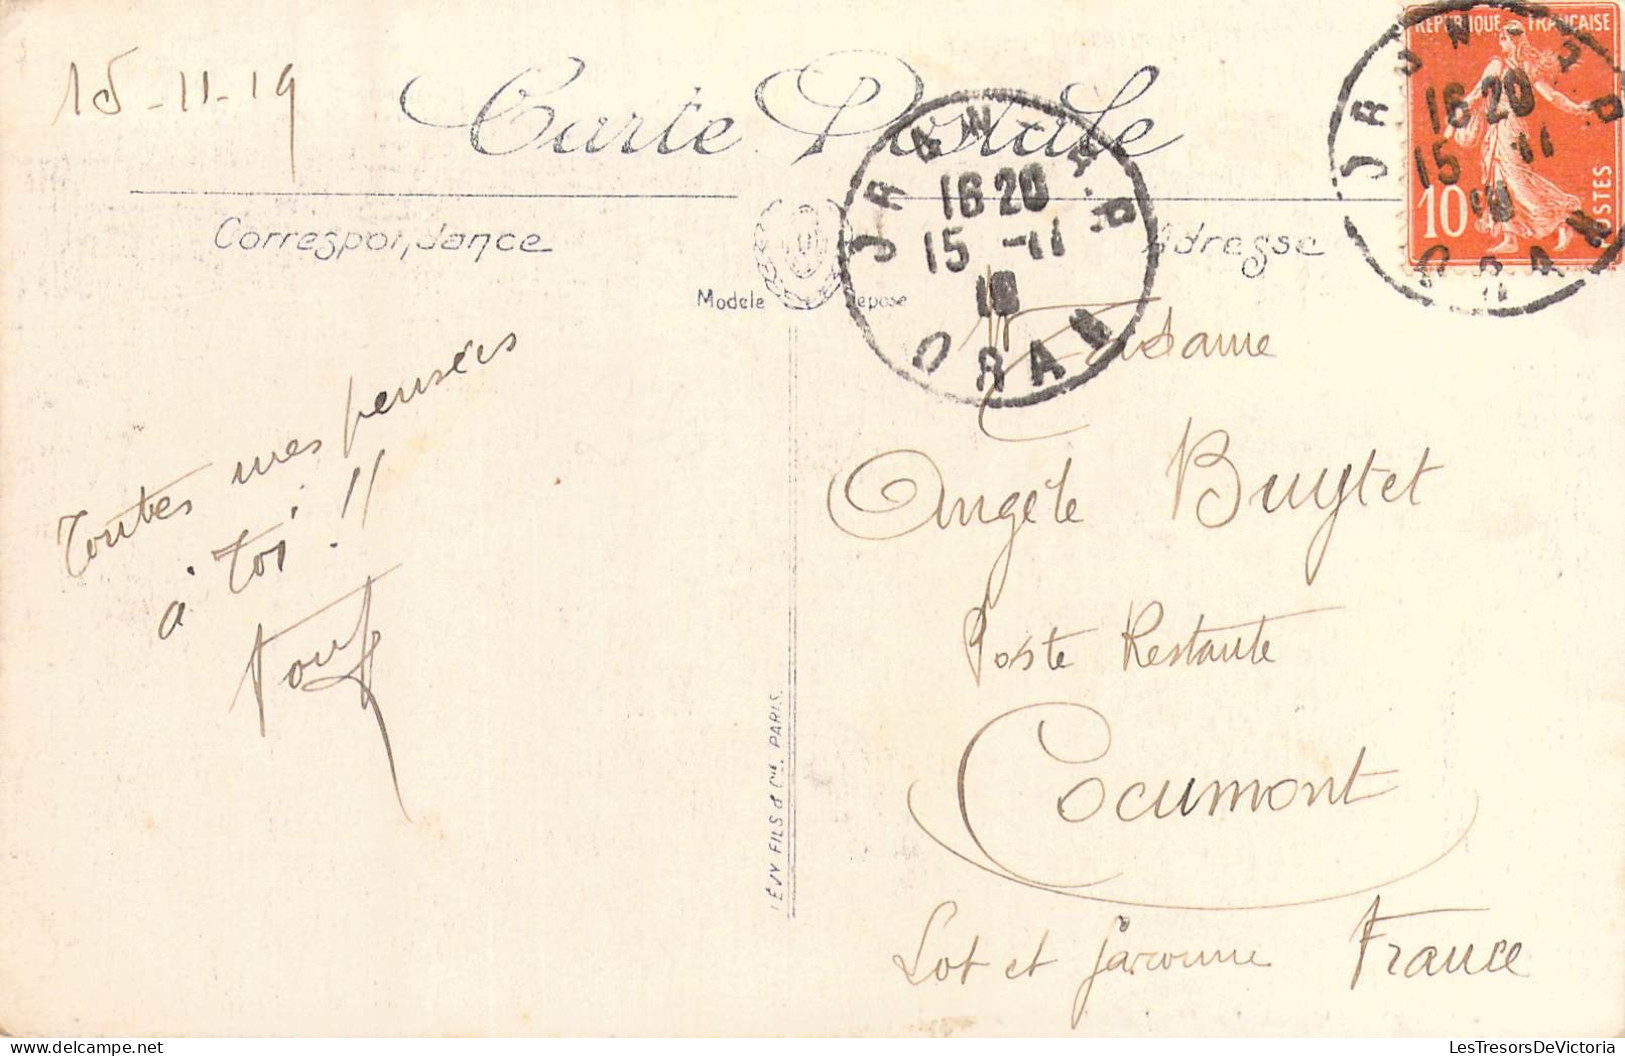 15-11-19
Carte Postale
RÉPUBLIQUE FRANÇAISE
10
POSTES
16 20
15 -11
ORAN
16 20
15 -11
ORAN
Correspondance
Adresse
Modele Déposé
Toutes mes pensées
à toi !!
Madame
Angèle Buytet
Poste Restante
Cocumont
Lot et Garonne France
LÉVY FILS & Cie, PARIS.
LesTresorsDeVictoria.com